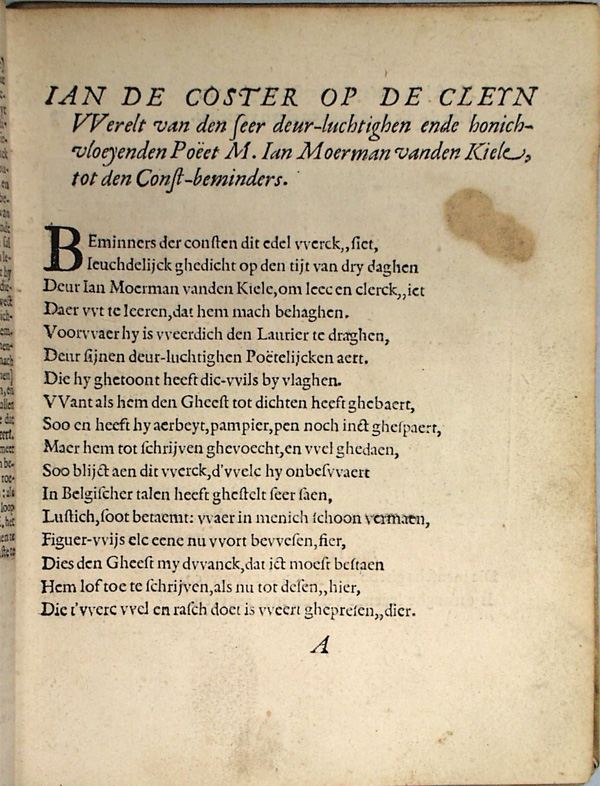 IAN DE COSTER OP DE CLEYN
VVerelt van den ſeer deur-luchtighen ende honich-
vloeyenden Poëet M. Ian Moerman vanden Kiele,
tot den Conſt-beminders.
BEminners der conſten dit edel vverck,, ſiet,
Ieuchdelijck ghedicht op den tijt van dry daghen
Deur Ian Moerman vanden Kiele, om leec en clerck,, iet
Daer vvt te leeren, dat hem mach behaghen.
Voorvvaer hy is vveerdich den Laurier te draghen,
Deur ſijnen deur-luchtighen Poëtelijcken aert.
Die hy ghetoont heeft die-vvils by vlaghen.
VVant als hem den Gheeſt tot dichten heeft ghebaert,
Soo en heeft hy aerbeyt, pampier, pen noch inct gheſpaert,
Maer hem tot ſchrijven ghevoecht, en vvel ghedaen,
Soo blijct aen dit vverck, d'vvelc hy onbeſvvaert
In Belgiſcher talen heeft gheſtelt ſeer ſaen,
Luſtich, ſoot betaemt: vvaer in menich ſchoon vermaen,
Figuer-vvijs elc eene nu vvort bevveſen, fier,
Dies den Gheeſt my dvvanck, dat ict moeſt beſtaen
Hem lof toe te ſchrijven, als nu tot deſen,, hier,
Die t'vverc vvel en raſch doet is vveert ghepreſen,, dier.
A